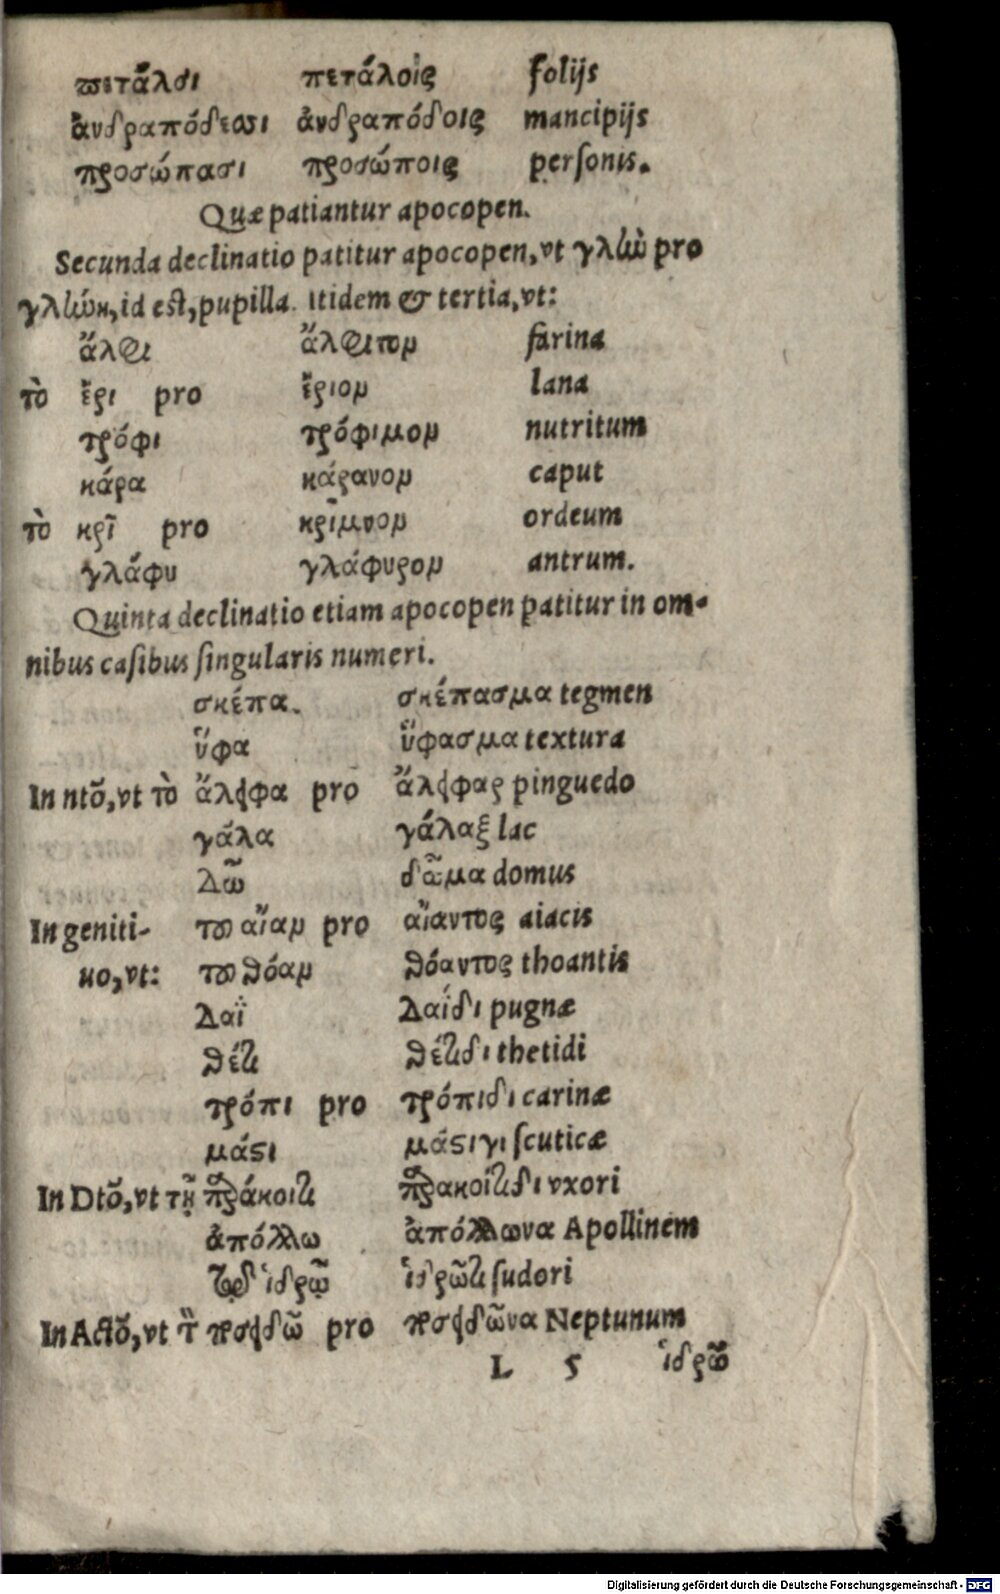 πετάλσι πετάλοις folijs
ἀνδραπόδεσσι ἀνδραπόδοις mancipijs
προσώπασι προσώποις personis.
Quæ patiantur apocopen.
Secunda declinatio patitur apocopen, vt γλὼ pro
γλώκ, id est, pupilla. itidem & tertia, vt:
ἄλφι ἄλφιτον farina
τὸ ἔρι pro ἔριον lana
τρόφι τρόφιμον nutritum
κάρα κάρανον caput
τὸ κρῖ pro κρῖμνον ordeum
γλάφυ γλάφυρον antrum.
Quinta declinatio etiam apocopen patitur in om-
nibus casibus singularis numeri.
σκέπα. σκέπασμα tegmen
ὕφα ὕφασμα textura
In ntō, vt τὸ ἄλειφα pro ἄλειφας pinguedo
γάλα γάλαξ lac
Δῶ δῶμα domus
In geniti- του αἴαν pro αἴαντος aiacis
uo, vt: του θόαν θόαντος thoantis
Δαΐ Δαΐδι pugnæ
θέτι θέτιδι thetidi
τρόπι pro τρόπιδι carinæ
μάστι μάστιγι scuticæ
In Dtō, vt τῇ παράκοιτι παρακοίτιδι vxori
ἀπόλλω ἀπόλλωνα Apollinem
τῷ ἱδρῷ ἱδρῶτι sudori
In Actō, vt τ ποσειδῶ pro ποσειδῶνα Neptunum
L 5 ἱδρῶ
Digitalisierung gefördert durch die Deutsche Forschungsgemeinschaft - DFG